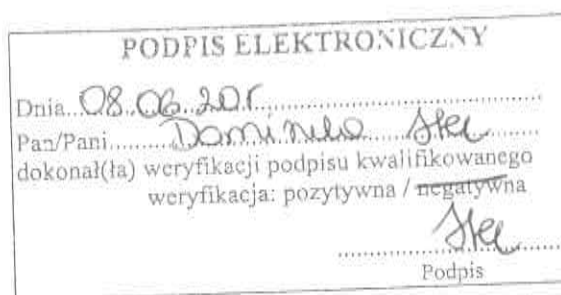 PODPIS ELEKTRONICZNY
Dnia...08.06.20r...
Pan/Pani...
dokonał(ła) weryfikacji podpisu kwalifikowanego
weryfikacja: pozytywna / negatywna
Podpis